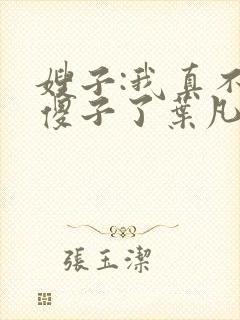 嫂子:我真不
傻子了葉凡
張玉潔